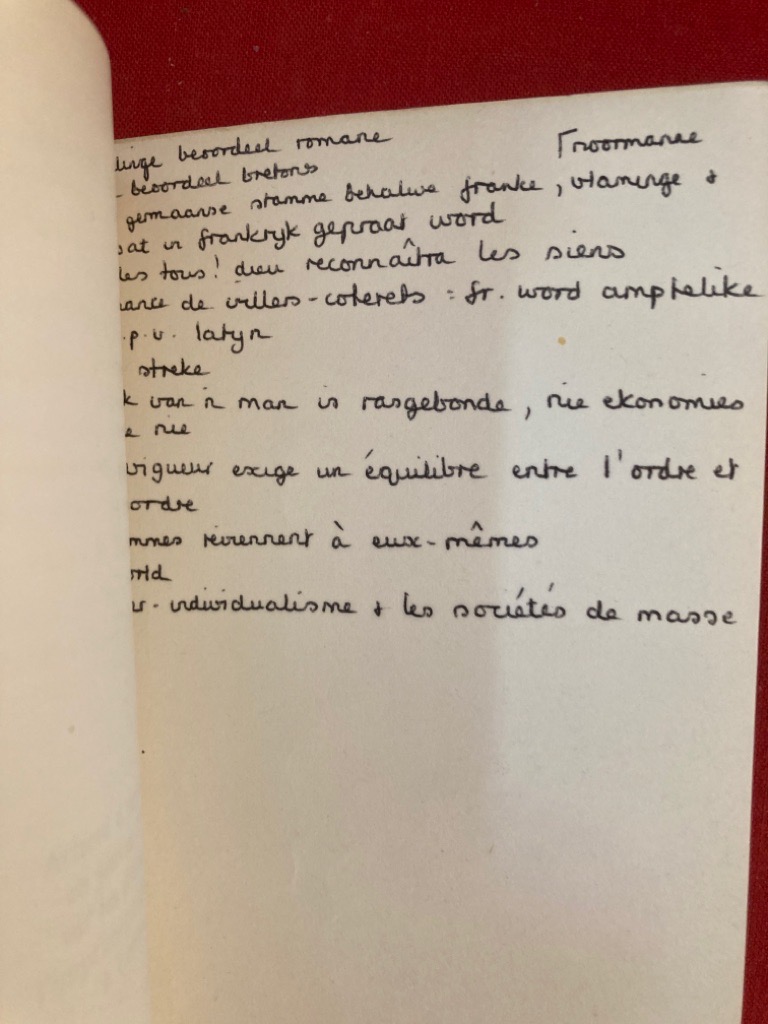 linge beoordeel romane ⌈noormanne
- beoordeel bretons
germaanse stamme behalwe franke, vlaminge &
wat in frankryk gepraat word
les tous! dieu reconnaîtra les siens
nance de villers-coterets = fr. word amptelike
.p.v. latyn
streke
k van 'n man is rasgebonde, nie ekonomies
e nie
vigueur exige un équilibre entre l'ordre et
ordre
mmes reviennent à eux-mêmes
orld
individualisme & les sociétés de masse